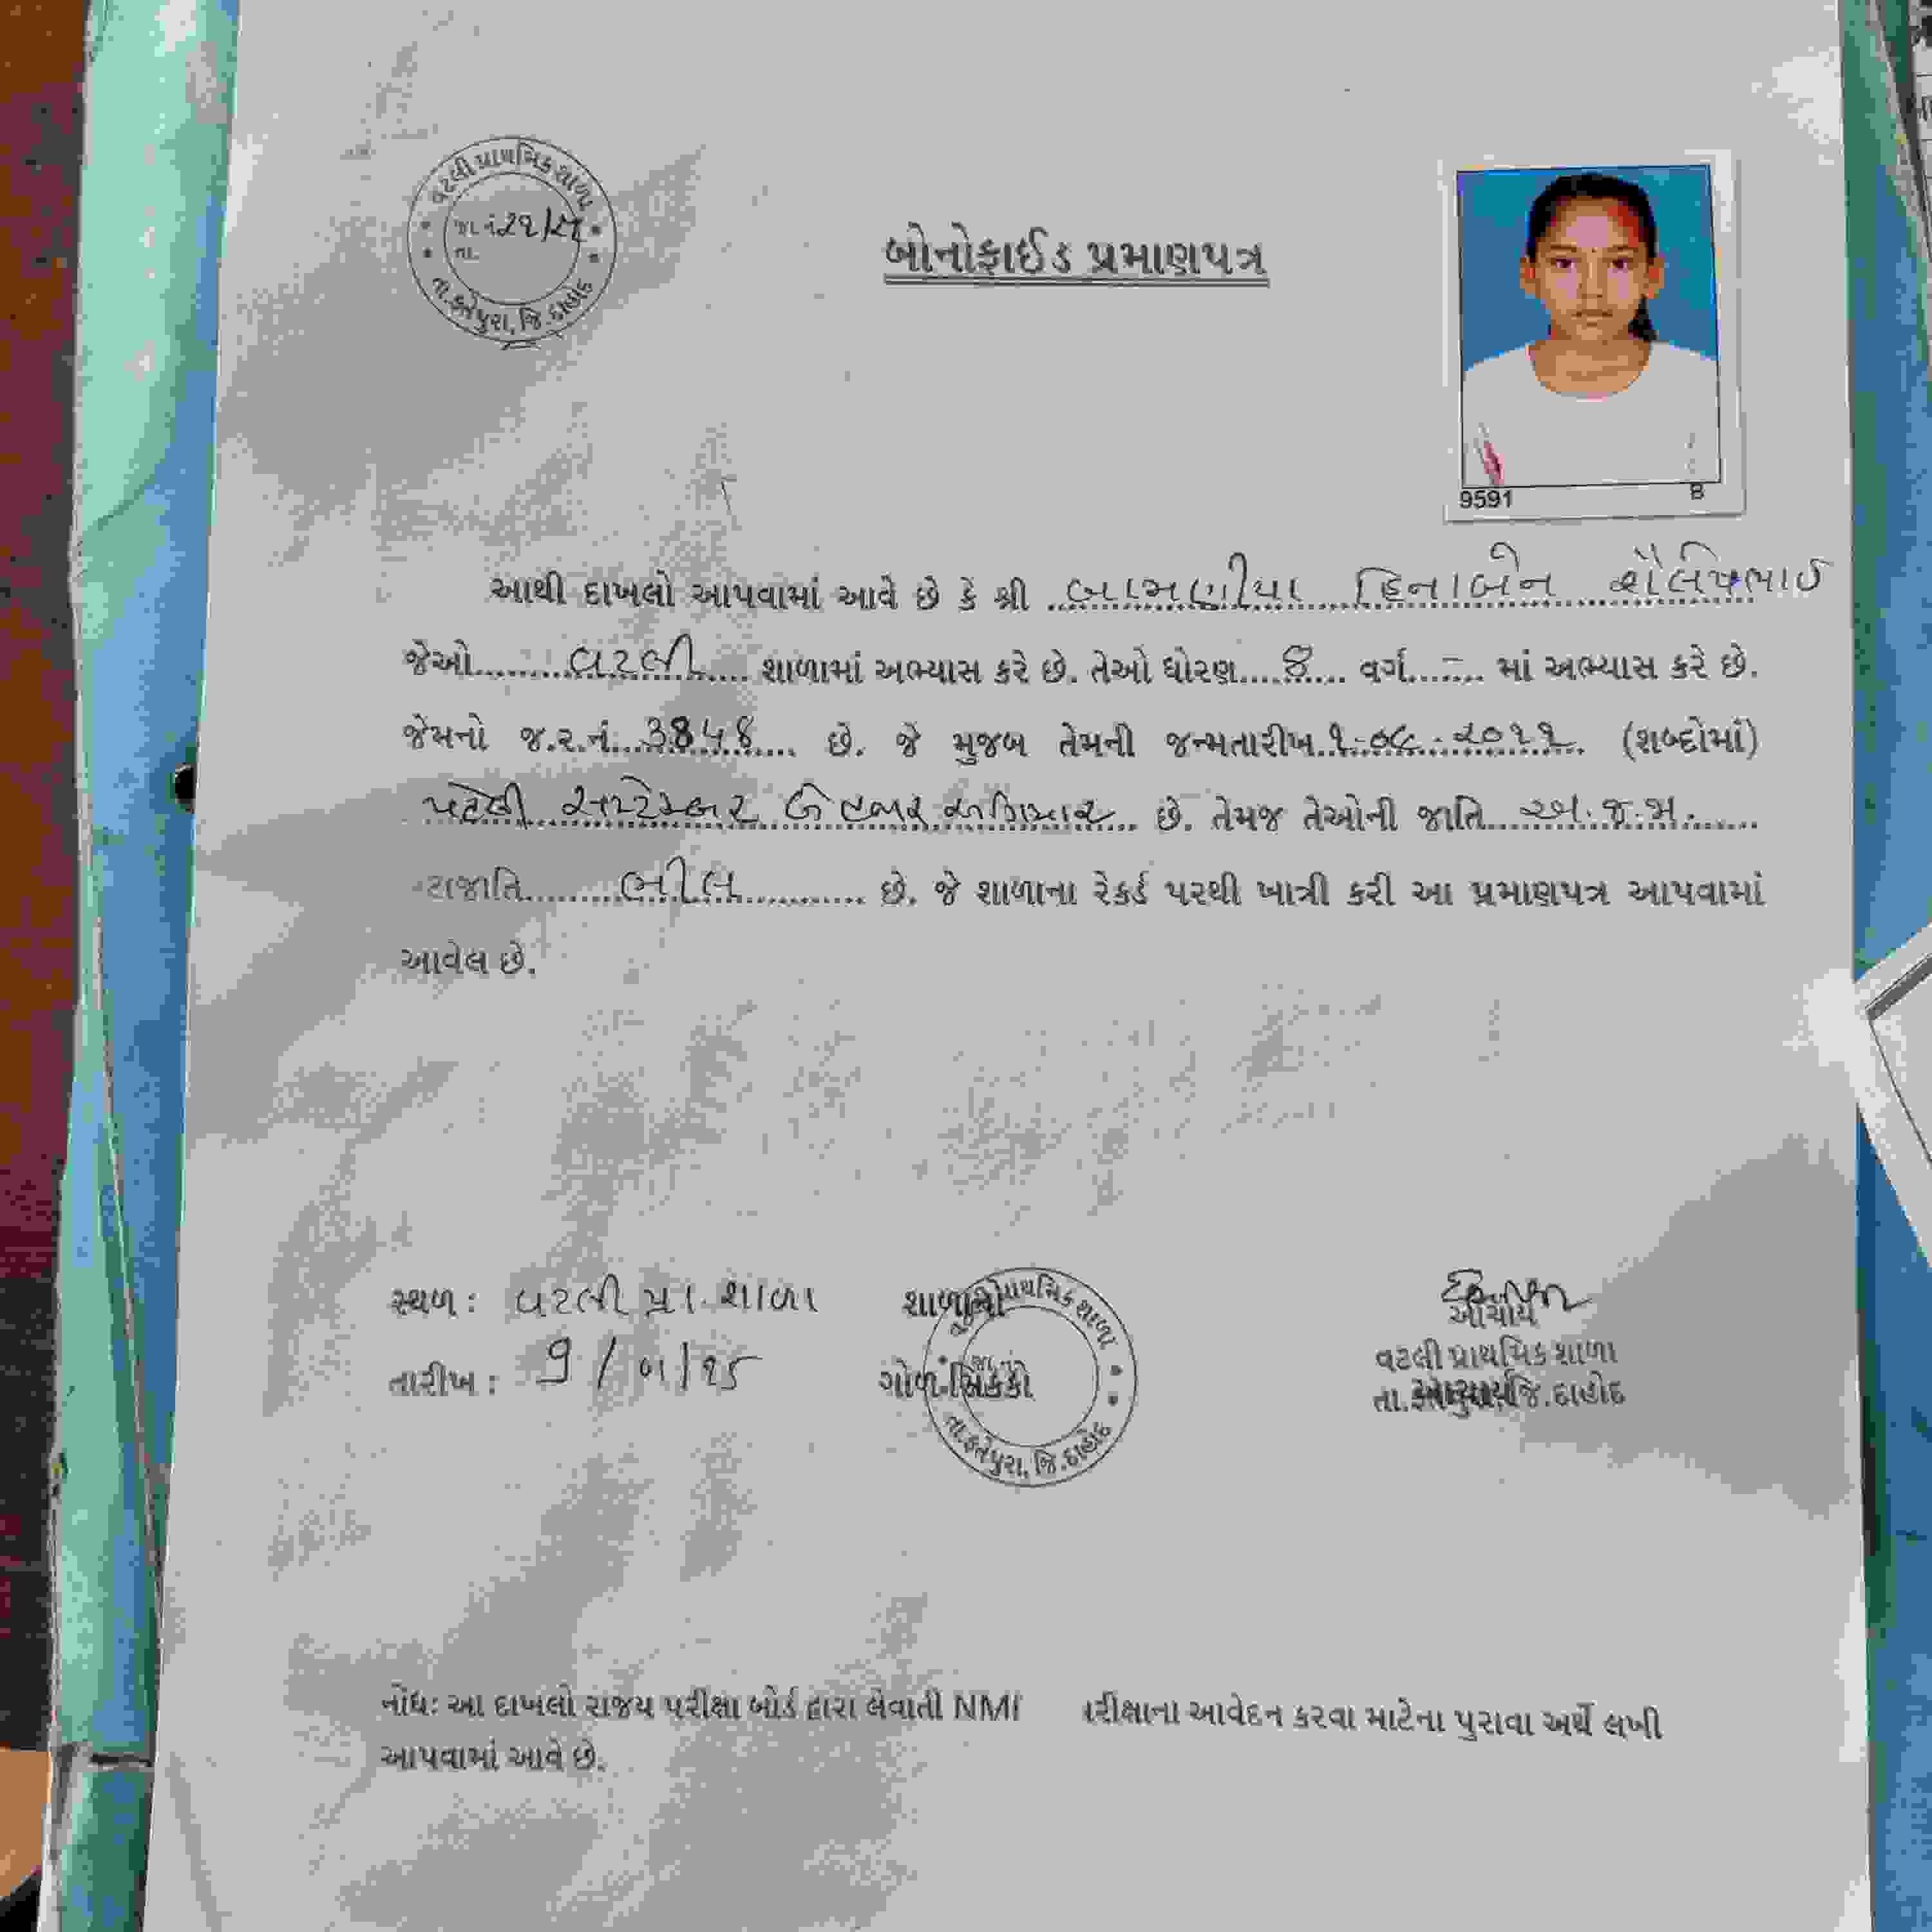 વટલી પ્રાથમિક શાળા
જા.નં ૨૧/૨૫
તા.
તા.ફતેપુરા, જિ.દાહોદ
બોનોફાઈડ પ્રમાણપત્ર
9591 B
આથી દાખલો આપવામાં આવે છે કે શ્રી બામણીયા હિનાબેન શૈલેષભાઈ
જેઓ વટલી શાળામાં અભ્યાસ કરે છે. તેઓ ધોરણ 8 વર્ગ - માં અભ્યાસ કરે છે.
જેમનો જ.ર.નં. 3848 છે. જે મુજબ તેમની જન્મતારીખ ૧-૦૯-૨૦૧૧ (શબ્દોમાં)
પહેલી સપ્ટેમ્બર બે હજાર અગિયાર છે. તેમજ તેઓની જાતિ અ.જ.જા.
ટાજાતિ ભીલ છે. જે શાળાના રેકર્ડ પરથી ખાત્રી કરી આ પ્રમાણપત્ર આપવામાં
આવેલ છે.
સ્થળ : વટલી પ્રા. શાળા
તારીખ : 9/૦૧/૨૫
શાળાનો
ગોળ સિકકો
વટલી પ્રાથમિક શાળા
તા.ફતેપુરા, જિ.દાહોદ
આચાર્ય
વટલી પ્રાથમિક શાળા
તા.ફતેપુરા, જિ.દાહોદ
આચાર્ય
નોંધઃ આ દાખલો રાજય પરીક્ષા બોર્ડ દ્વારા લેવાતી NM પરીક્ષાના આવેદન કરવા માટેના પુરાવા અર્થે લખી
આપવામાં આવે છે.